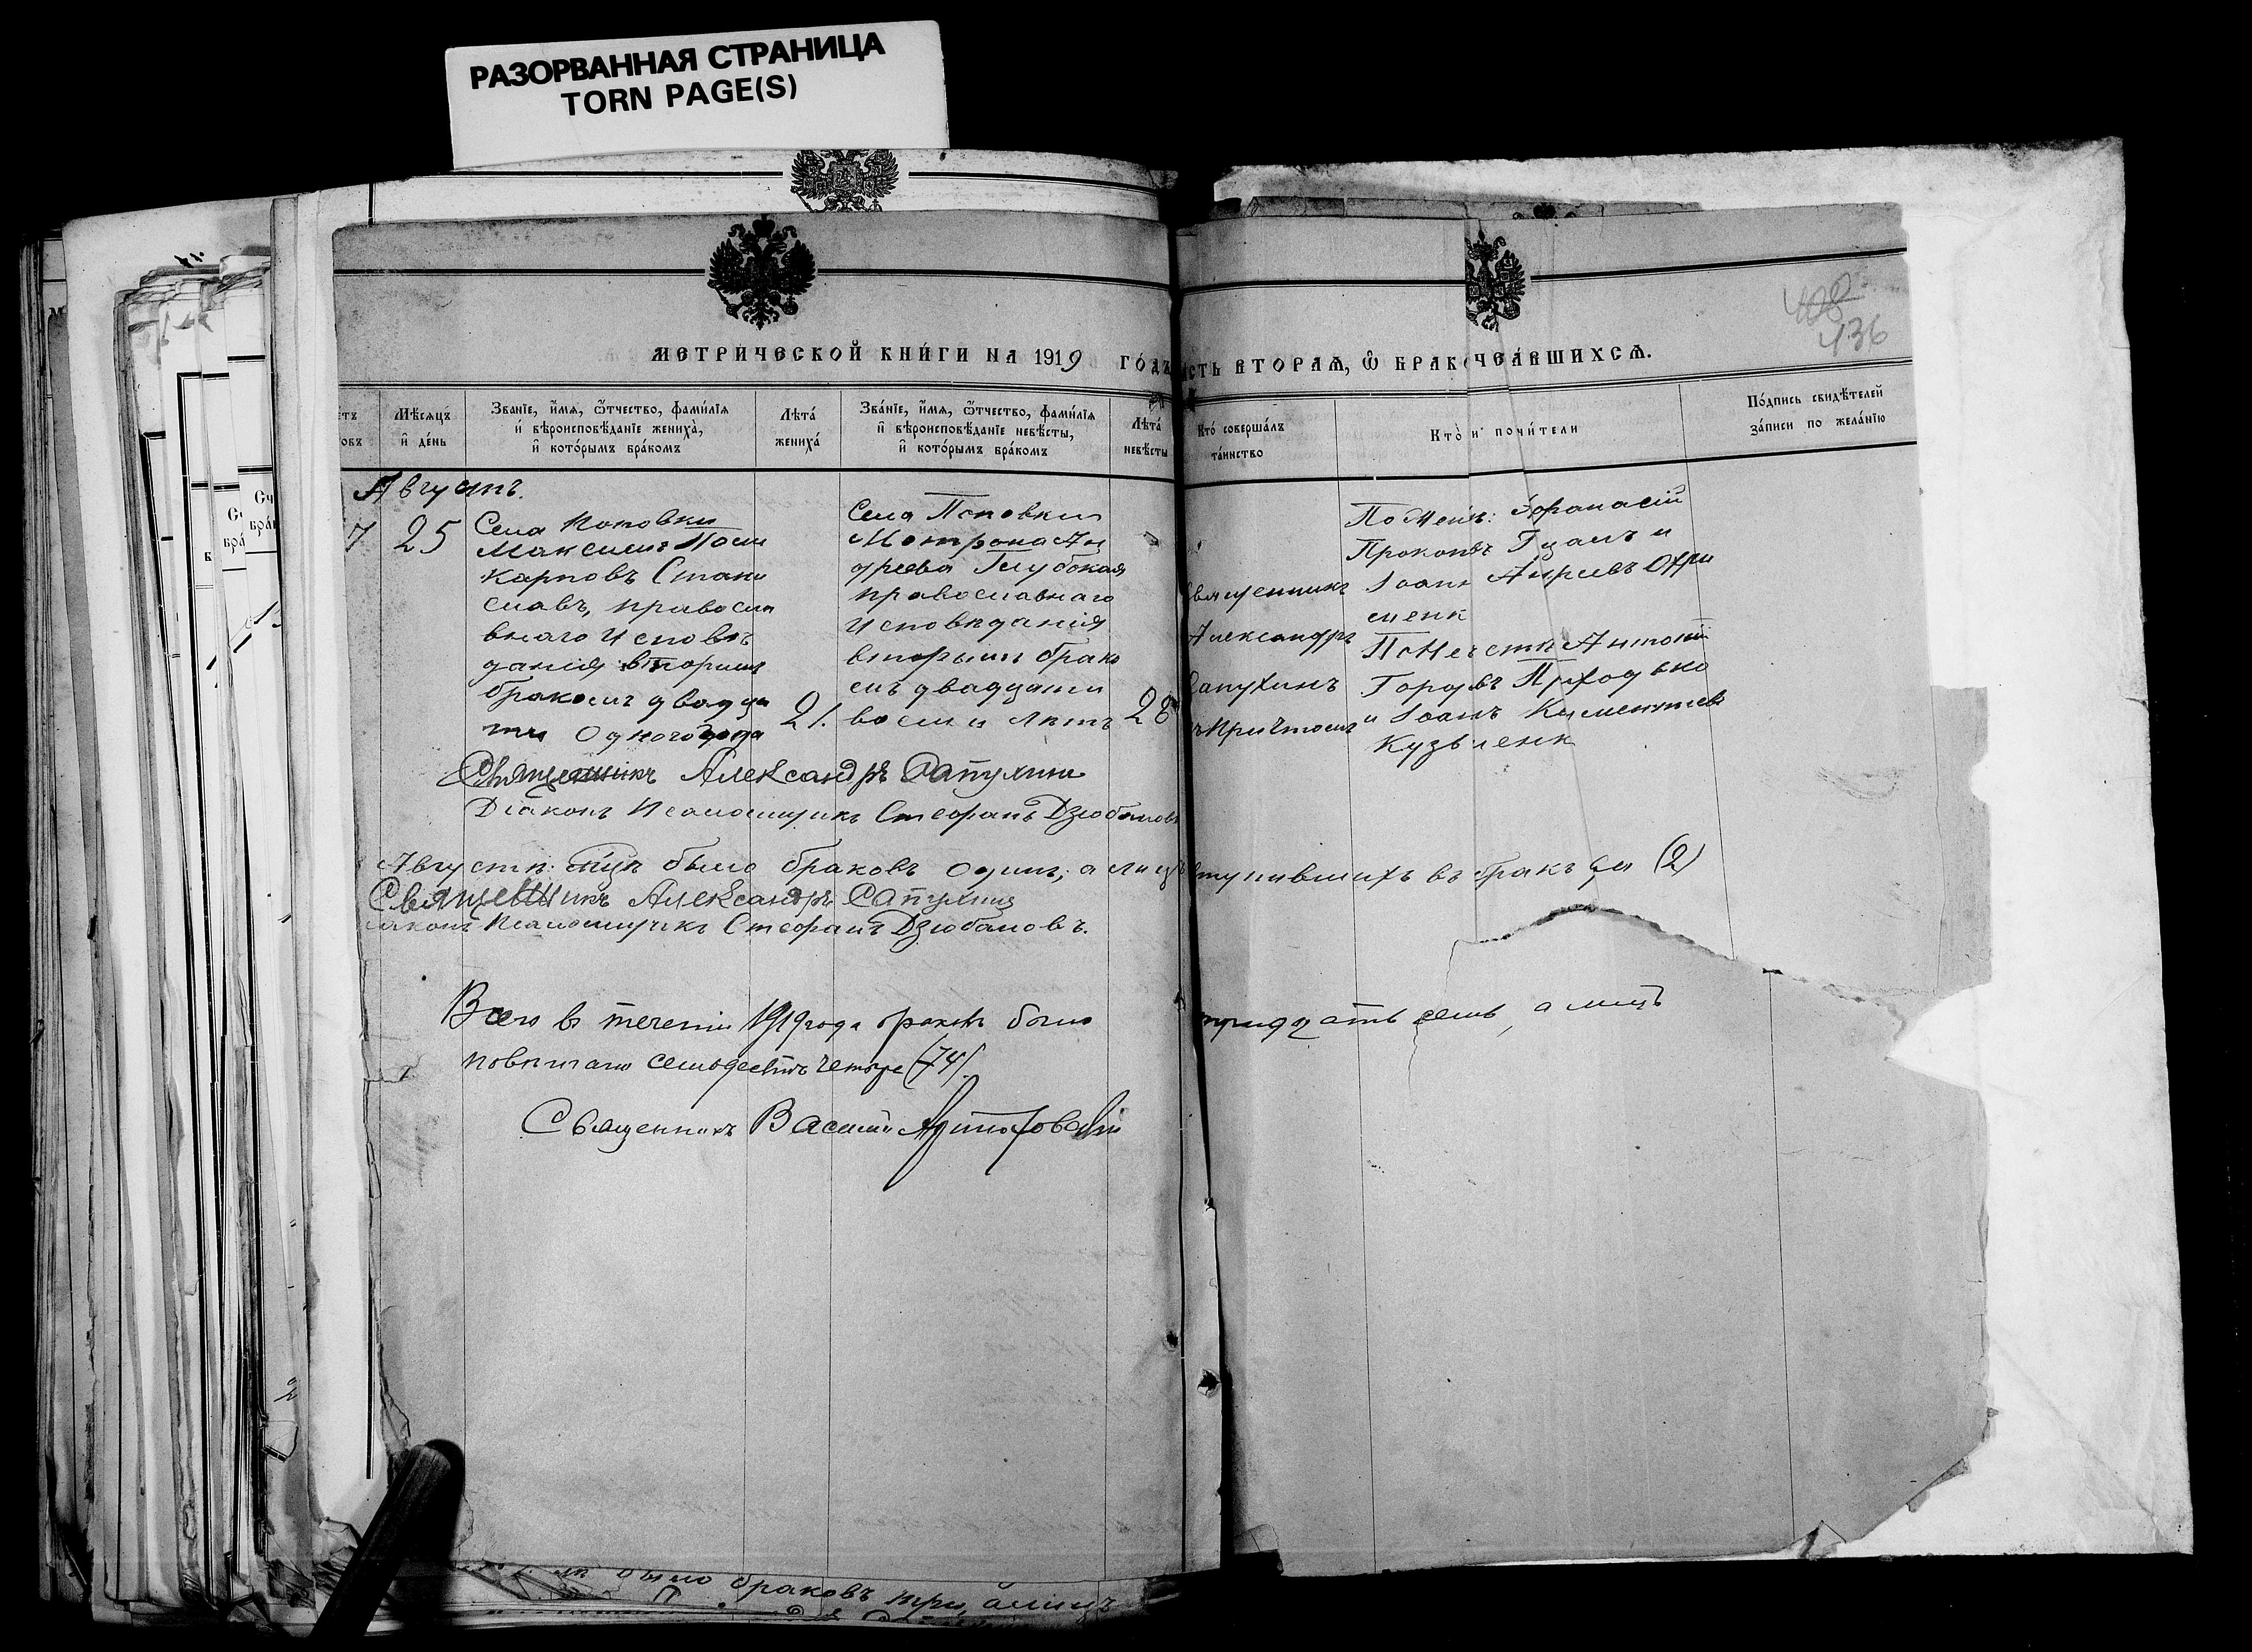 РАЗОРВАННАЯ СТРАНИЦА
TORN PAGE(S)
МЕТРИ́ЧЕСКОЙ КНИ́ГИ НА 1919 ГО́ДЪ
СТЬ ВТОРАѦ, Ѿ БРАКОЧЕА́ВШИХСѦ.
408
436
Мѣ́сяцъ и де́нь
Зва́нїе, и́мя, ѿ́тчество, фами́лїя и вѣроисповѣ́данїе жениха̀, и кото́рымъ бра́комъ
Лѣта́ жениха́
Зва́нїе, и́мя, ѿ́тчество, фами́лїя и вѣроисповѣ́данїе невѣ́сты, и кото́рымъ бра́комъ
Лѣта́ невѣ́сты
Кто́ соверша́лъ та́инство
Кто̀ и почи́тели
По́дпись свидѣ́телей за́писи по жела́нїю
Августъ.
7
25
Села Поповки
Максимъ Поли
карповъ Стани
славъ, правосла
внаго исповѣ
данія вторымъ
бракомъ двадца
ти одного года
21.
Села Поповки
Матрона Ан
дреева Глубокая
православнаго
исповѣданія
вторымъ брако
мъ двадцати
восьми лѣтъ
28
священникъ
Александръ
Сапухинъ
съ причтомъ
По жен: Афанасій
Прокопъ и
Іоан
Антоній
и Іоанъ Климентіевъ
Священникъ Александръ Сапухинъ
Діаконъ Псаломщикъ Стефанъ Дзюбановъ
Августѣ м-цѣ было браковъ одинъ, а лицъ вступившихъ въ бракъ два (2)
Священникъ Александръ Сапухинъ
Діаконъ Псаломщикъ Стефанъ Дзюбановъ.
Всего въ теченіи 1919 года браковъ было тридцать семь, а лицъ
повѣнчано семьдесять четыре (74).
Священникъ Василій
было браковъ три, а лицъ